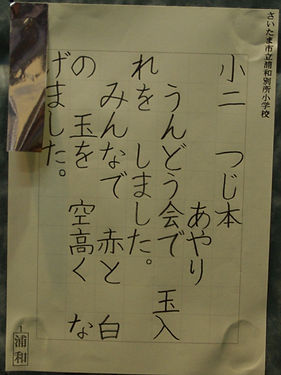 さいたま市立浦和別所小学校
小二 つじ本
あやり
うんどう会で 玉入
れを しました。
みんなで 赤と 白
の 玉を 空高く な
げました。
浦和